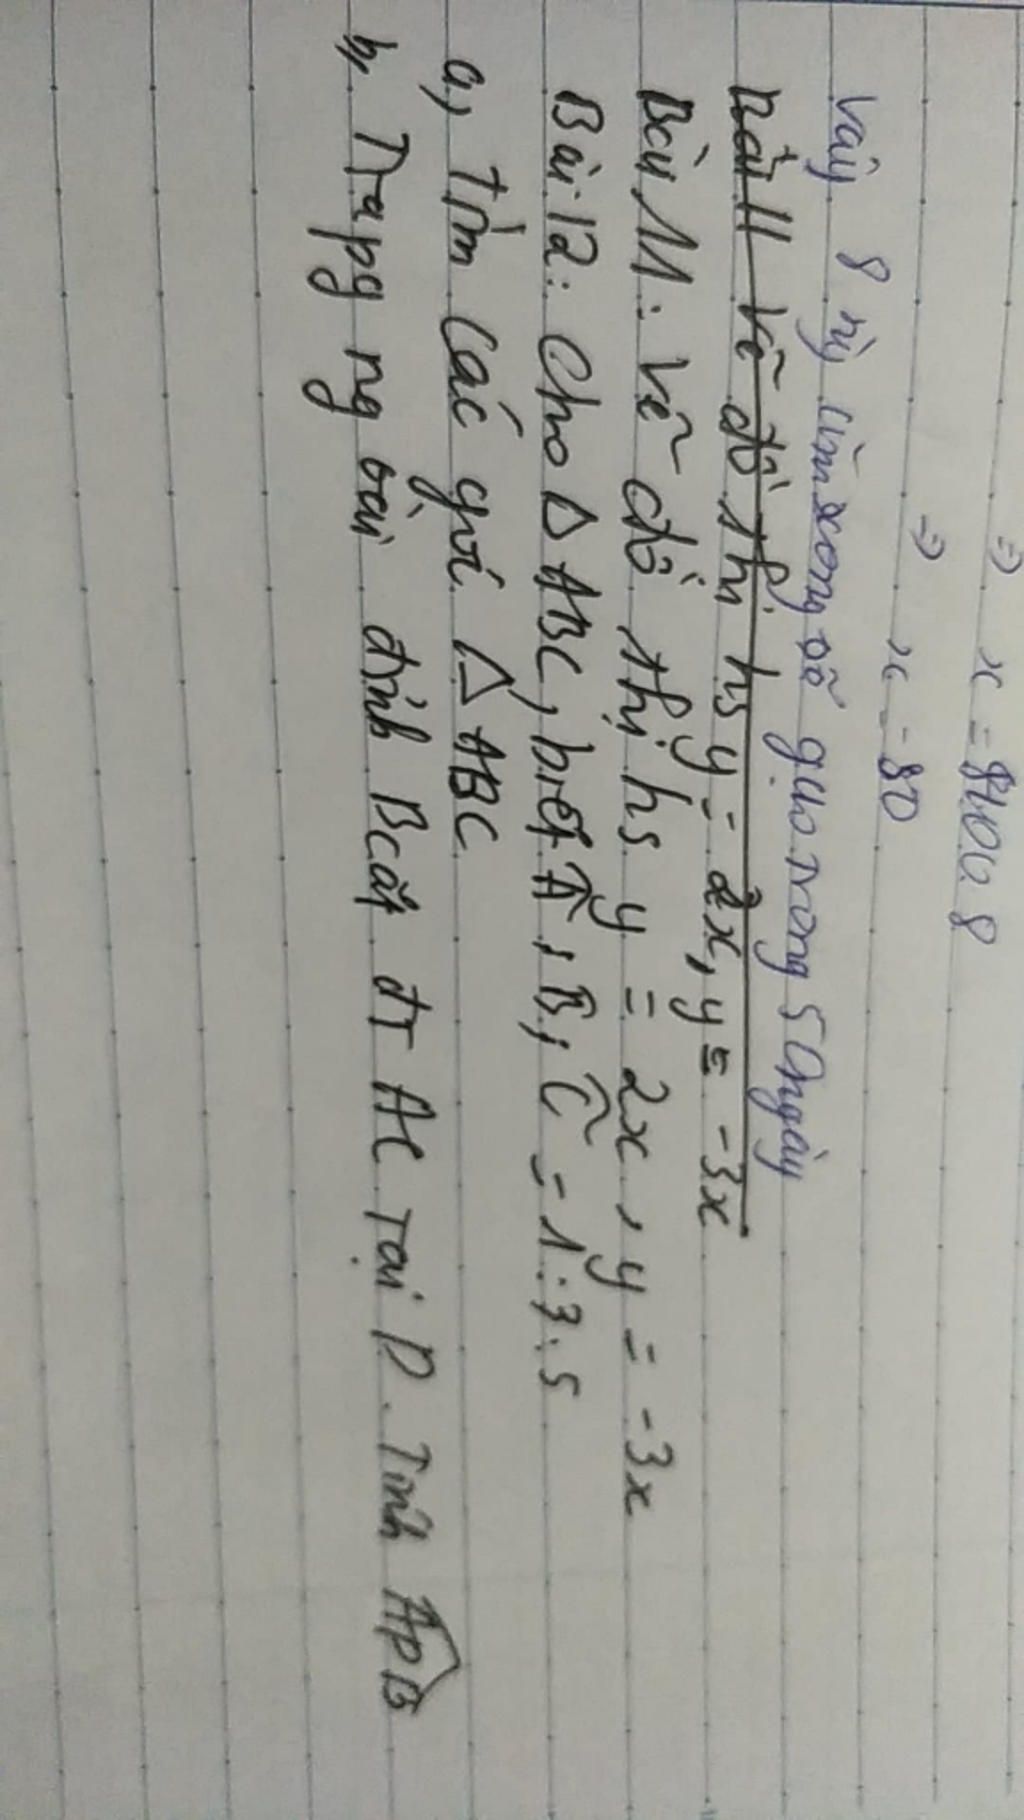 => x = 8
=> x = 80
Vậy 8 làm xong số gạo trong 50 ngày
Bài 11 Vẽ đồ thị hs y = 2x, y = -3x
Bài 11: Vẽ đồ thị hs y = 2x, y = -3x
Bài 12: Cho Δ ABC, biết Â, B, Ĉ = 1:3:5
a, Tìm các góc Δ ABC
b, ng đỉnh B cắt đt AC tại D. Tính ADB